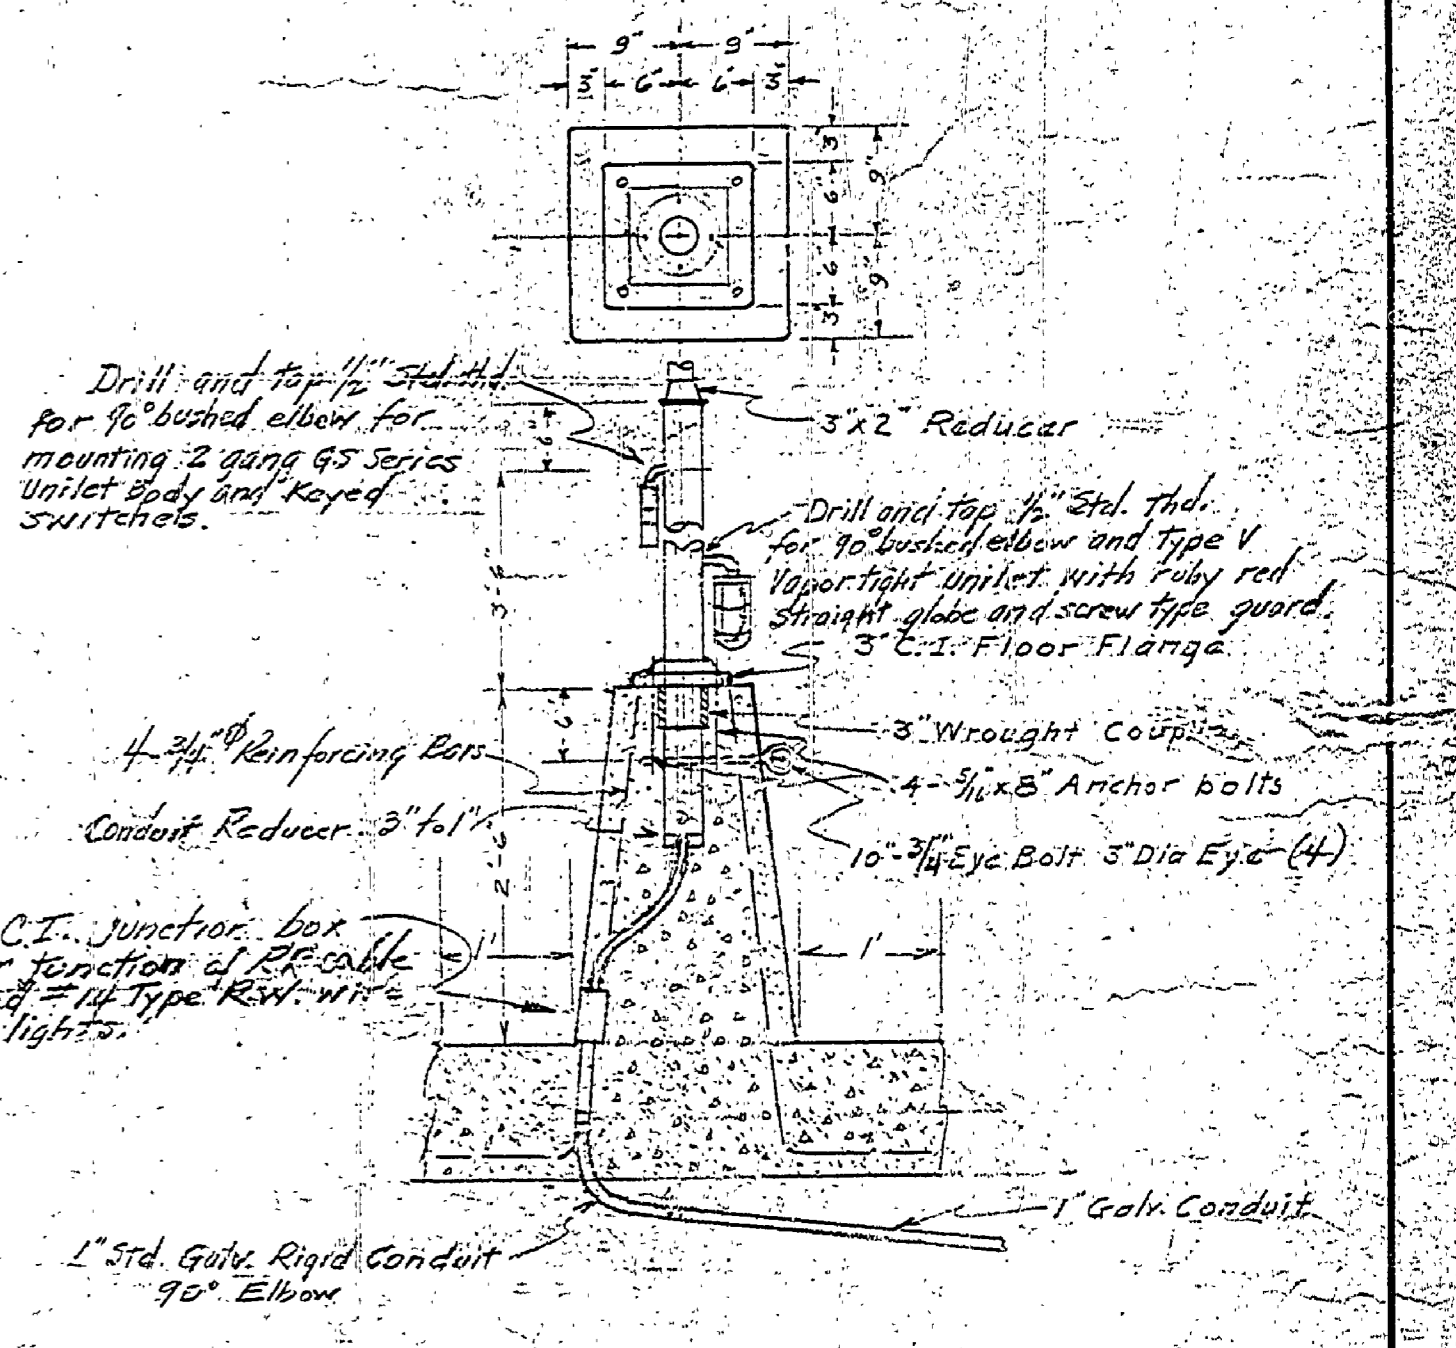 9" 9"
3" 6" 6" 3"
3"
6"
9"
6"
9"
3"
Drill and tap 1/2" Std. thd.
for 90° bushed elbow for
mounting 2 gang GS Series
Unilet Body and Keyed
switches.
6"
3"x2" Reducer
Drill and tap 1/2" Std. thd.
for 90° bushed elbow and Type V
Vapor tight unilet with ruby red
straight globe and screw type guard.
3" C.I. Floor Flange
6"
3" Wrought
4-3/4"Φ Reinforcing Bars
4-5/16"x8" Anchor bolts
Conduit Reducer 3" to 1"
10"-3/4" Eye Bolt 3" Dia Eye (4)
2'-6"
C.I. junction box
junction of
#14 Type R.W. wire
lights.
1'
1'
1" Galv. Conduit
1" Std. Galv. Rigid Conduit
90° Elbow